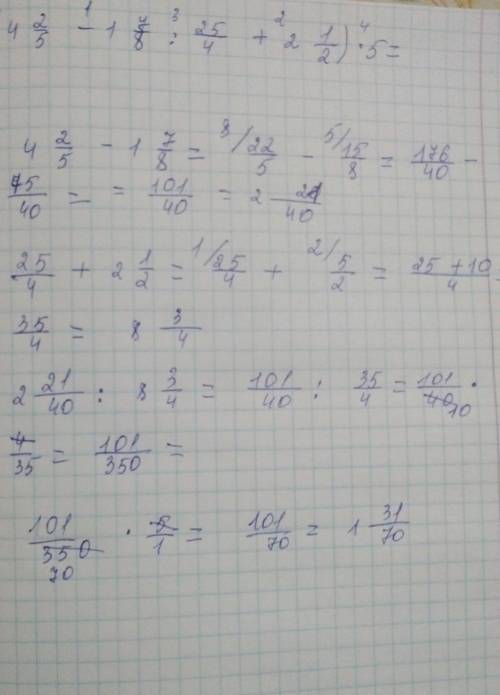 4 2/5 -¹ 1 7/8 :³ 25/4 +² 2 1/2) ·⁴ 5 =
4 2/5 - 1 7/8 = ⁸/ 22/5 - ⁵/ 15/8 = 176/40 -
75/40 = = 101/40 = 2 21/40
25/4 + 2 1/2 = ¹/ 25/4 + ²/ 5/2 = 25 + 10/4 =
35/4 = 8 3/4
2 21/40 : 8 3/4 = 101/40 : 35/4 = 101/40 10 ·
4/35 = 101/350 =
101/350 70 · 5/1 = 101/70 = 1 31/70